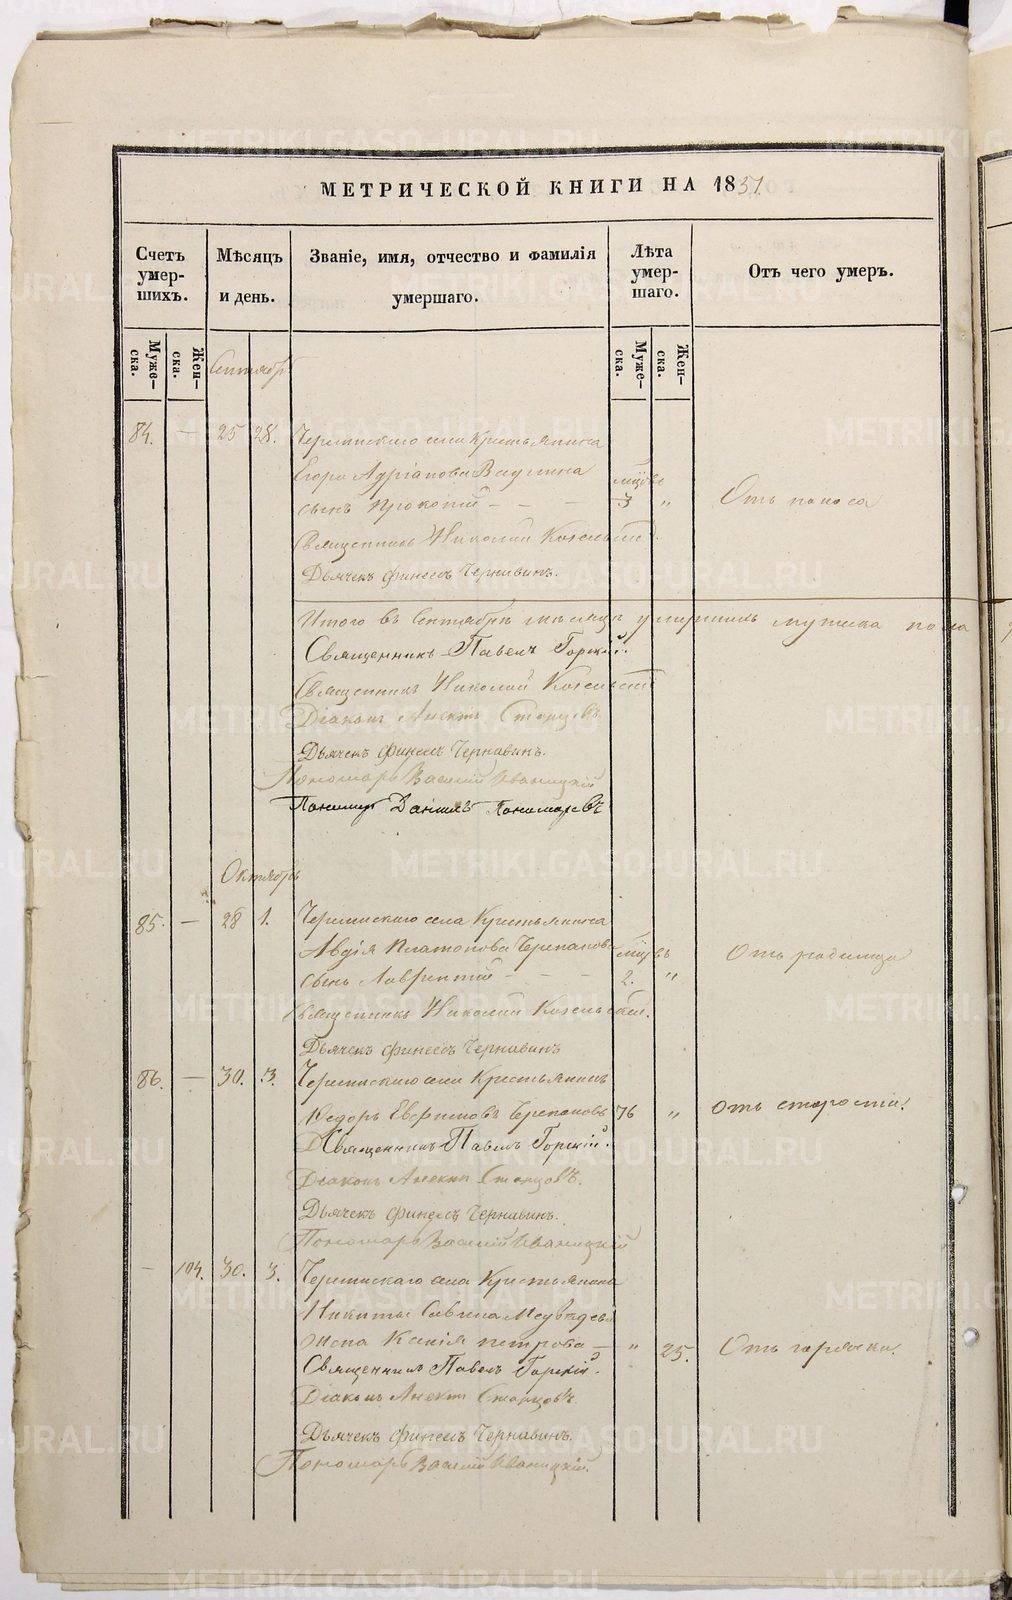 МЕТРИЧЕСКОЙ КНИГИ НА 1851.
Счетъ умер-шихъ.
Мѣсяцъ и день.
Званіе, имя, отчество и фамилія умершаго.
Лѣта умер-шаго.
Отъ чего умеръ.
Муже-ска.
Жен-ска.
Муже-ска.
Жен-ска.
Сентябрь
84. — 25 28. села Крестьянина
Егора Адріанова
сынъ Прокопій — — 3 „ Отъ поноса
Священникъ Николай
Дьячекъ Финеесъ Чернавинъ.
Итого въ Сентябрѣ мѣсяцѣ умершихъ мужска пола
Священникъ Павелъ Горскій.
Священникъ Николай
Діаконъ Старцовъ
Дьячекъ Финеесъ Чернавинъ.
Пономарь Василій Иваницкій
Пономарь Даніилъ Пономаревъ
Октябрь
85. — 28 1. села Крестьянина
Авдія Платонова Черепанова
сынъ Лаврентій — — — 2. „ Отъ родимца
Священникъ Николай
Дьячекъ Финеесъ Чернавинъ
86. — 30. 3. села Крестьянинъ
Федоръ Евфимовъ Черепановъ 76 „ Отъ старости.
Священникъ Павелъ Горскій.
Діаконъ Старцовъ.
Дьячекъ Финеесъ Чернавинъ.
Пономарь Василій Иваницкій
— 104. 30. 3. села Крестьянина
Никиты Савина Медвѣдева
жена Ксенія Петрова — „ 25. Отъ горячки.
Священникъ Павелъ Горскій.
Діаконъ Старцовъ.
Дьячекъ Финеесъ Чернавинъ.
Пономарь Василій Иваницкій.
METRIKI.GASO-URAL.RU